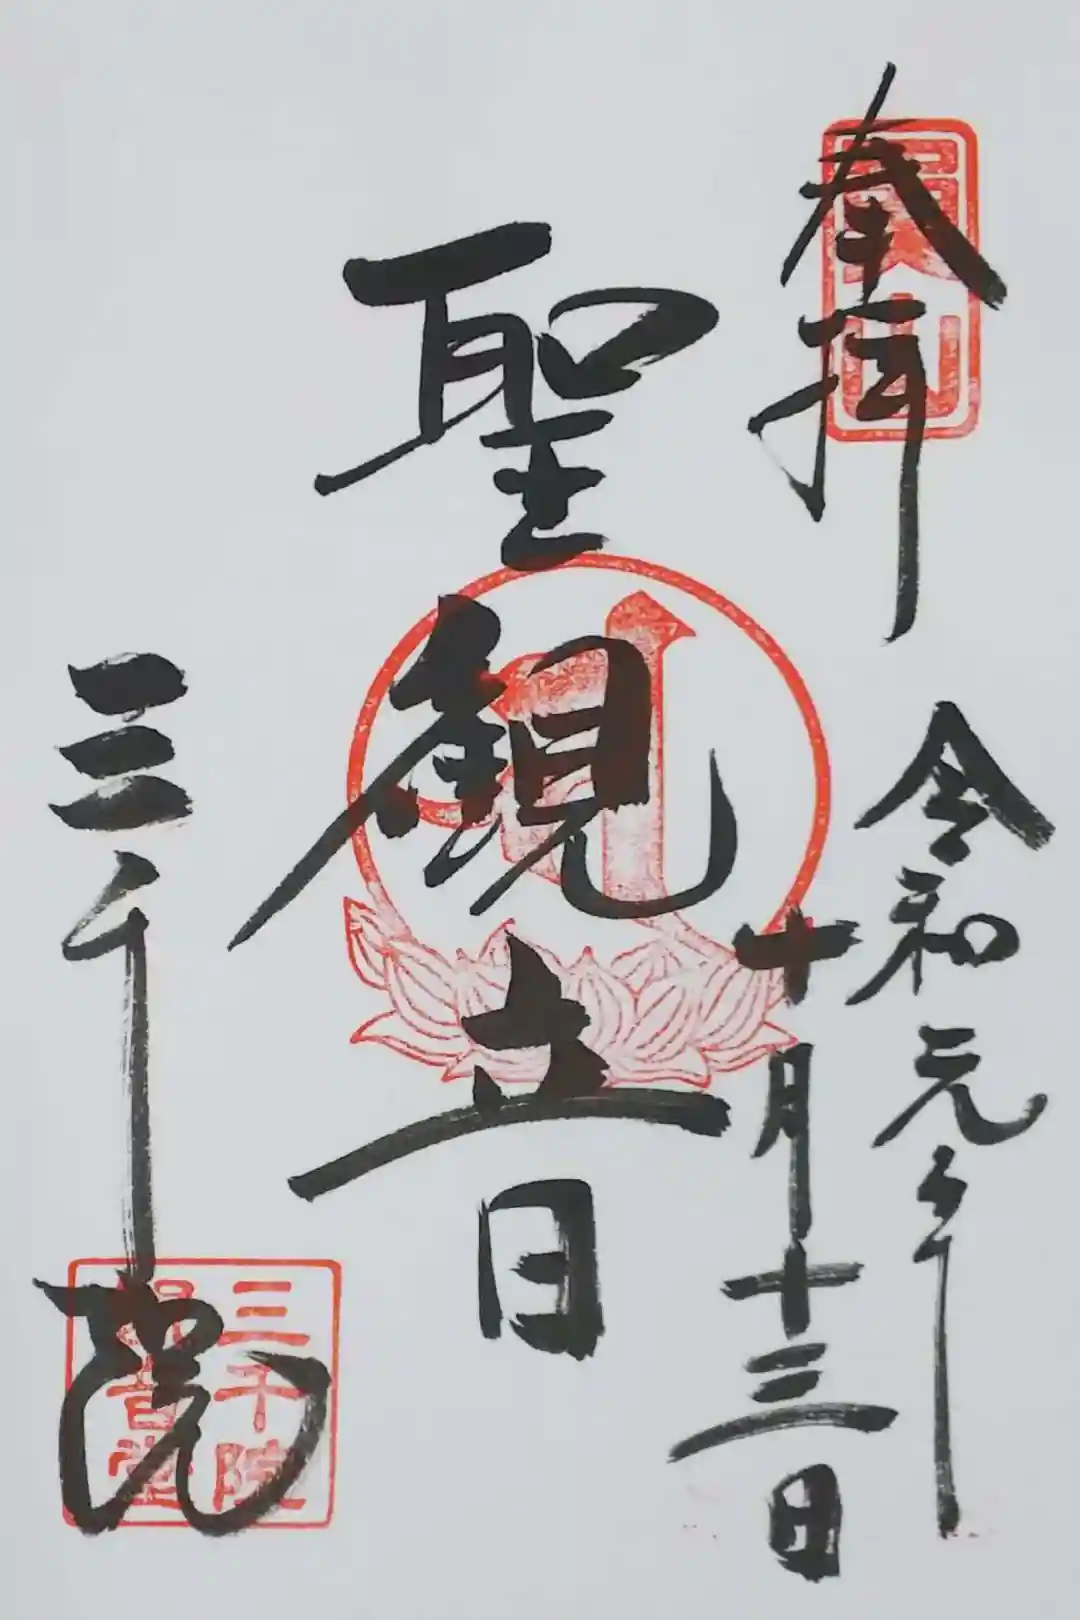 奉拝
令和元年
十月十三日
聖観音
三千院
三千院
観音堂